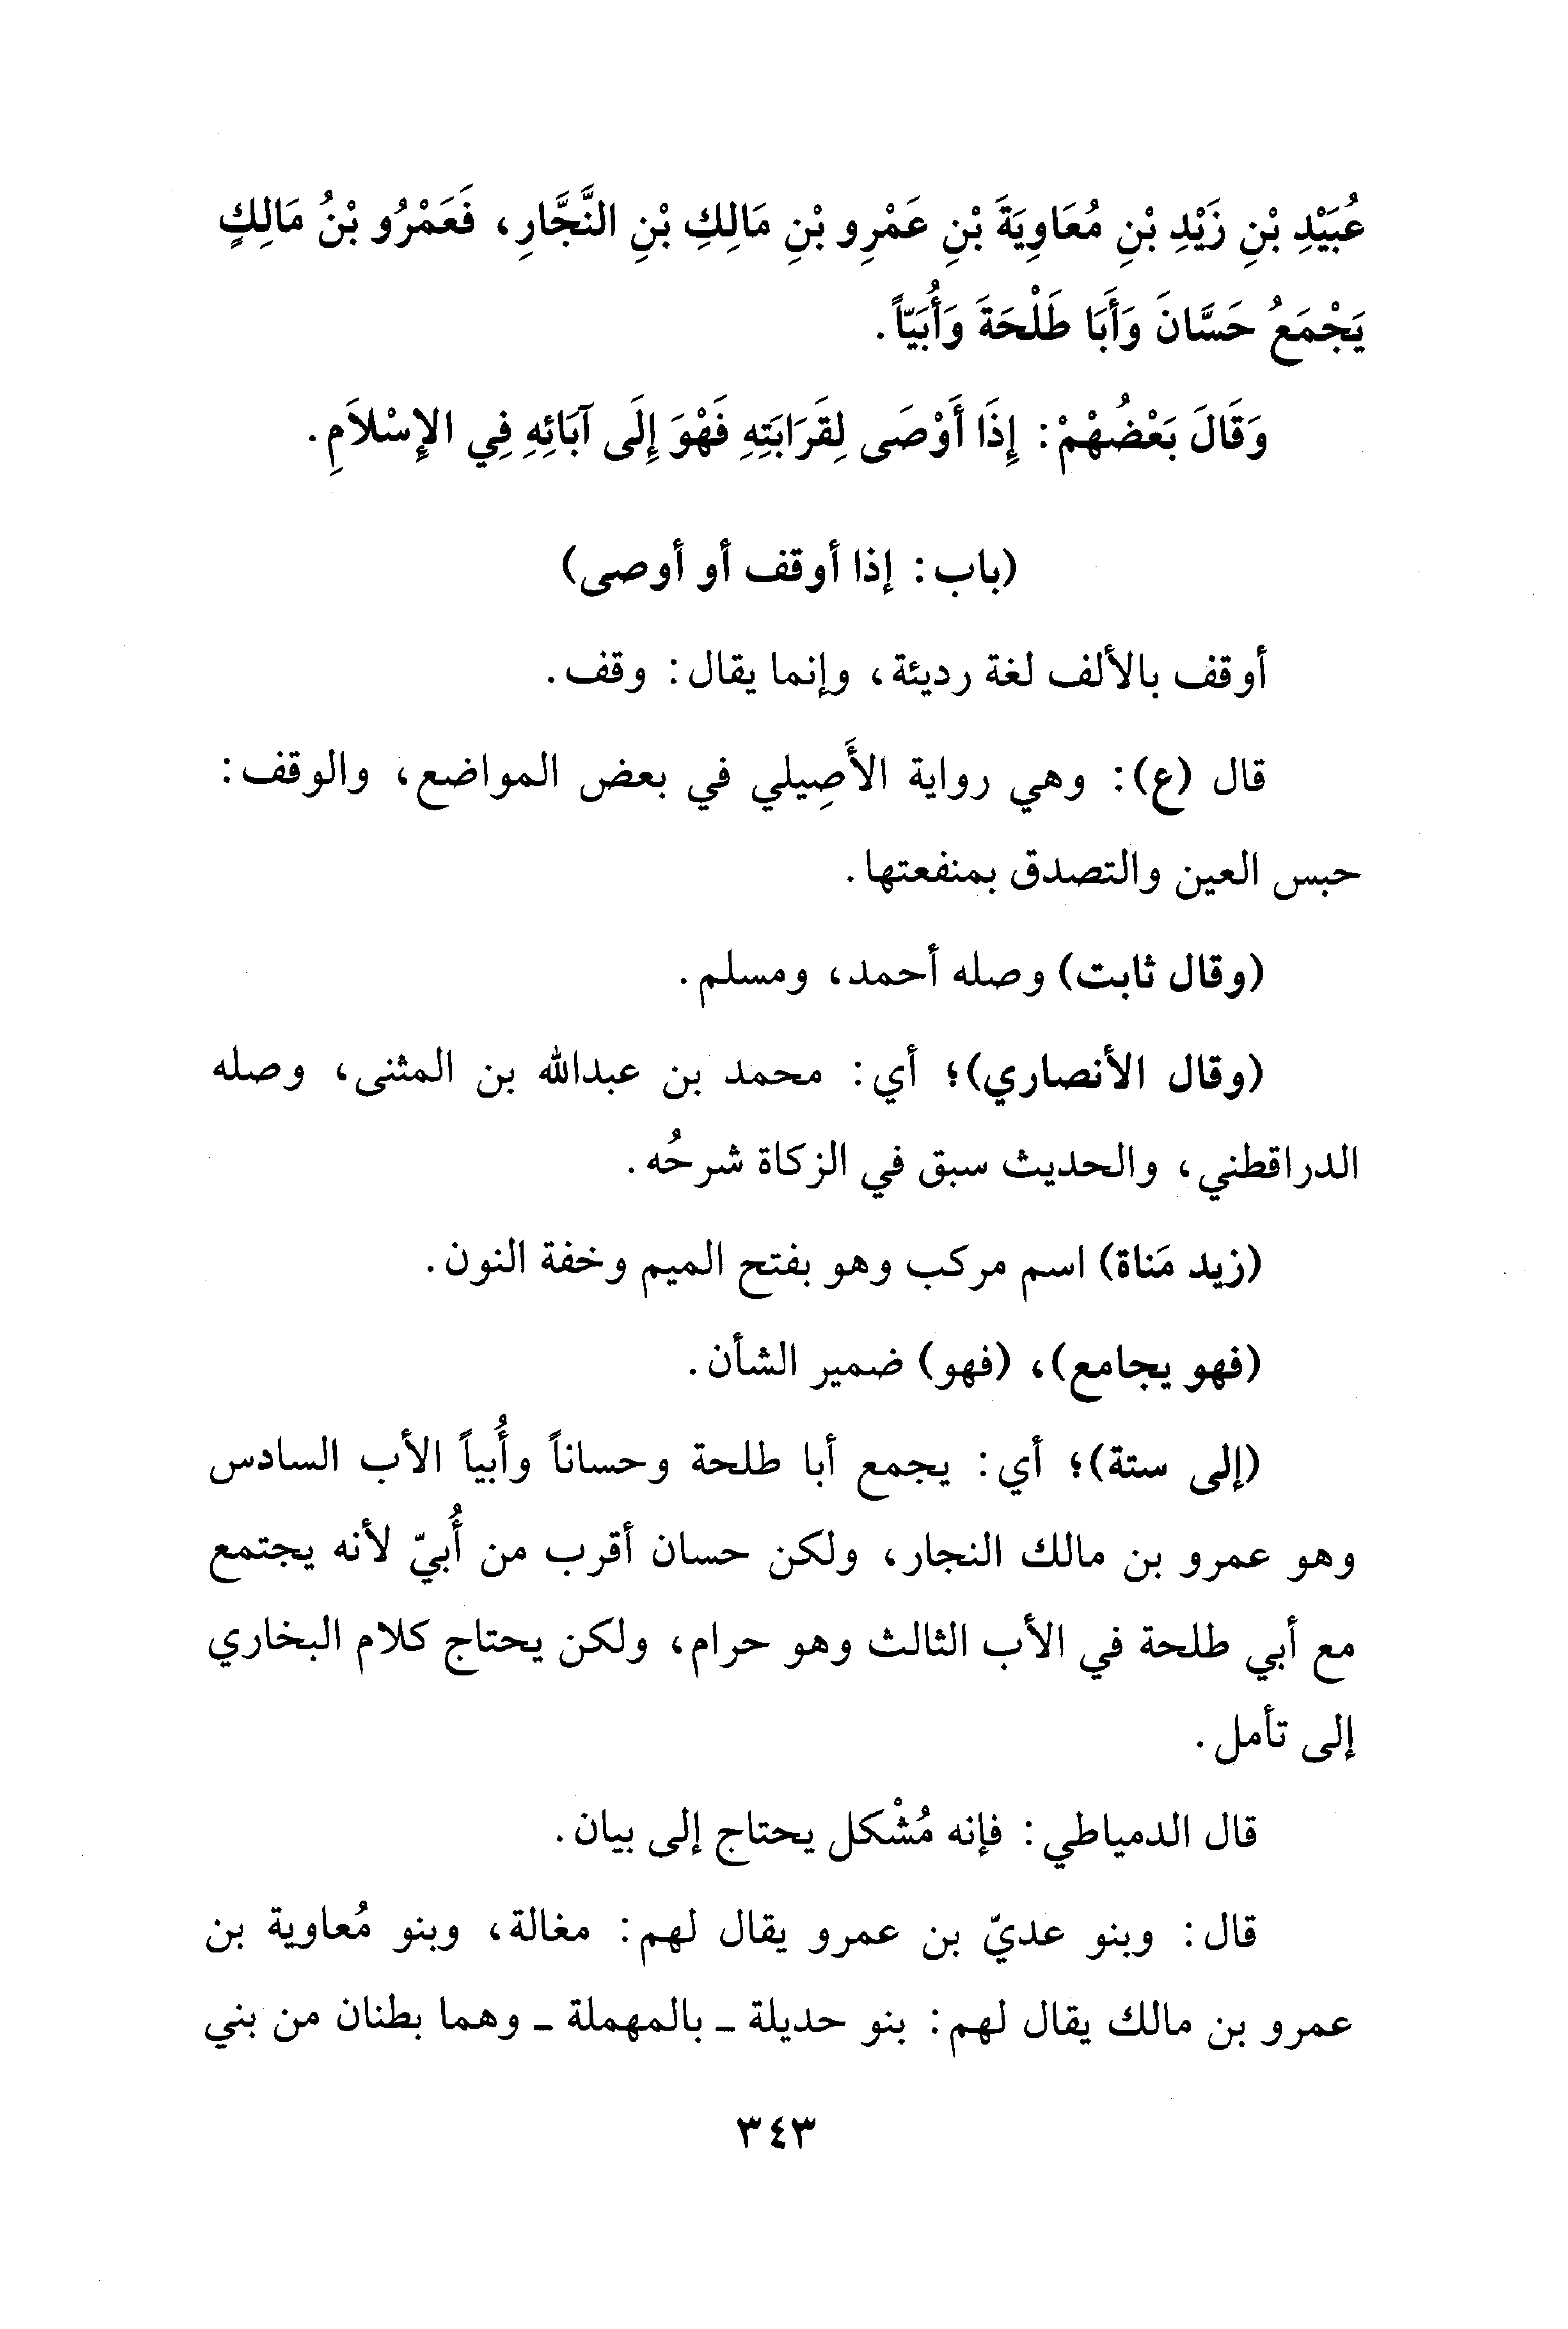 عُبَيْدِ بْنِ زَيْدِ بْنِ مُعَاوِيَةَ بْنِ عَمْرِو بْنِ مَالِكِ بْنِ النَّجَّارِ، فَعَمْرُو بْنُ مَالِكٍ
يَجْمَعُ حَسَّانَ وَأَبَا طَلْحَةَ وَأُبَيّاً.
وَقَالَ بَعْضُهُمْ: إِذَا أَوْصَى لِقَرَابَتِهِ فَهْوَ إِلَى آبَائِهِ فِي الإِسْلاَمِ.
(باب: إذا أوقف أو أوصى)
أوقف بالألف لغة رديئة، وإنما يقال: وقف.
قال (ع): وهي رواية الأَصِيلي في بعض المواضع، والوقف:
حبس العين والتصدق بمنفعتها.
(وقال ثابت) وصله أحمد، ومسلم.
(وقال الأنصاري)؛ أي: محمد بن عبدالله بن المثنى، وصله
الدراقطني، والحديث سبق في الزكاة شرحُه.
(زيد مَناة) اسم مركب وهو بفتح الميم وخفة النون.
(فهو يجامع)، (فهو) ضمير الشأن.
(إلى ستة)؛ أي: يجمع أبا طلحة وحساناً وأُبياً الأب السادس
وهو عمرو بن مالك النجار، ولكن حسان أقرب من أُبيّ لأنه يجتمع
مع أبي طلحة في الأب الثالث وهو حرام، ولكن يحتاج كلام البخاري
إلى تأمل.
قال الدمياطي: فإنه مُشْكل يحتاج إلى بيان.
قال: وبنو عديّ بن عمرو يقال لهم: مغالة، وبنو مُعاوية بن
عمرو بن مالك يقال لهم: بنو حديلة ـ بالمهملة ـ وهما بطنان من بني
٣٤٣